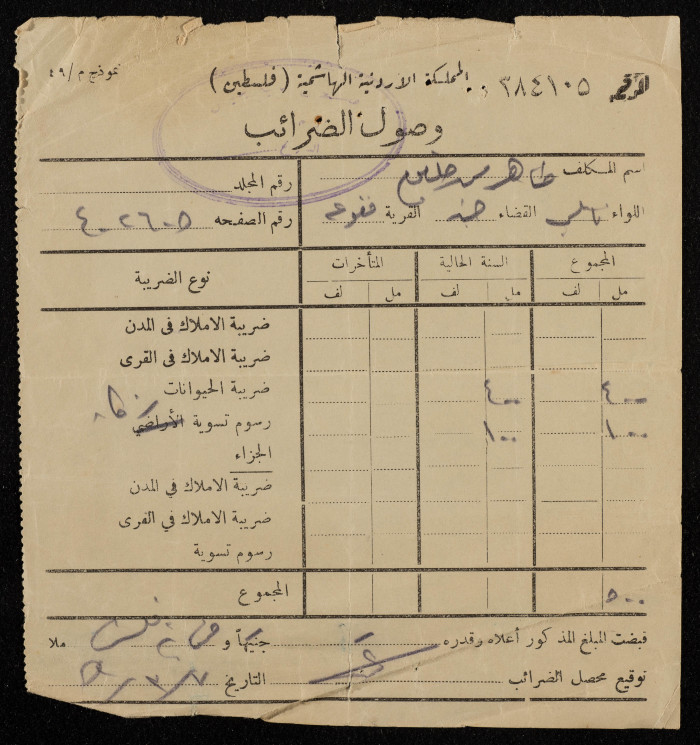 نموذج م/٤٩
المملكة الاردنية الهاشمية (فلسطين) الرقم ٣٨٤١٠٥
وصول الضرائب
اسم المكلف طاهر
رقم المجلد
اللواء نابلس القضاء جنين القرية فقوعة
رقم الصفحه
نوع الضريبة المتأخرات السنة الحالية المجموع
لف مل لف مل لف مل
ضريبة الاملاك في المدن
ضريبة الاملاك في القرى
ضريبة الحيوانات ٤٠٠ ٤٠٠
رسوم تسوية الأراضي ١٠٠ ١٠٠
الجزاء
ضريبة الاملاك في المدن
ضريبة الاملاك في القرى
رسوم تسوية
المجموع ٥٠٠
قبضت المبلغ المذكور أعلاه وقدره جنيهاً و ملا
توقيع محصل الضرائب التاريخ